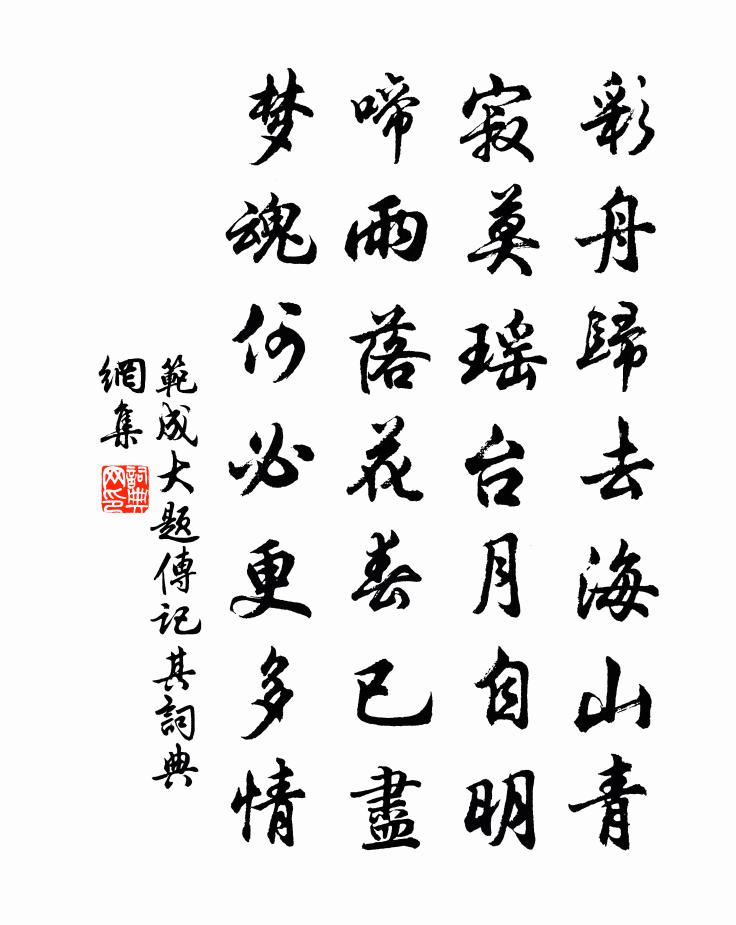 彩舟歸去海山青
寂莫瑶台月自明
啼雨落花春已盡
梦魂何必更多情
範成大題傳記其詞典
網集
詞典
网印